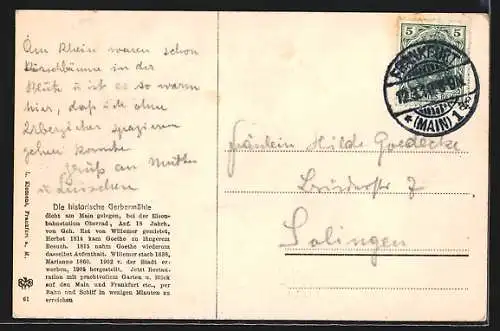 Am Rhein waren schon
Kirschbäume in der
Blüte u ist es so warm
hier, daß ich ohne
Überzieher spazieren
gehen konnte
Gruß an Mutter
u
Fräulein Hilde Goedecke
Brüderstr 7
Solingen
5 5
FRANKFURT
*(MAIN) 1
L. Klement, Frankfurt a. M.
61
Die historische Gerbermühle
dicht am Main gelegen, bei der Eisen-
bahnstation Oberrad, Auf. 18 Jahrh.
von Geh. Rat von Willemer gemietet,
Herbst 1814 kam Goethe zu längerem
Besuch. 1815 nahm Goethe wiederum
daselbst Aufenthalt. Willemer starb 1838,
Marianne 1860. 1902 v. der Stadt er-
worben, 1904 hergestellt. Jetzt Restau-
ration mit prachtvollem Garten u. Blick
auf den Main und Frankfurt etc., per
Bahn und Schiff in wenigen Minuten zu
erreichen